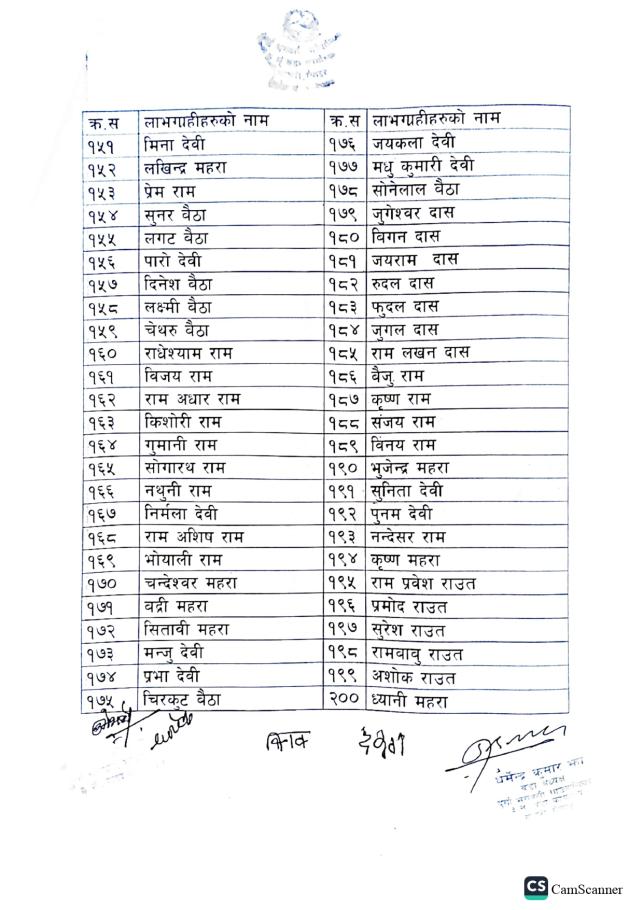 क्र.स लाभग्राहीहरुको नाम क्र.स लाभग्राहीहरुको नाम
१५१ मिना देवी १७६ जयकला देवी
१५२ लखिन्द्र महरा १७७ मधु कुमारी देवी
१५३ प्रेम राम १७८ सोनेलाल वैठा
१५४ सुनर वैठा १७९ जुगेश्वर दास
१५५ लगट वैठा १८० विगन दास
१५६ पारो देवी १८१ जयराम दास
१५७ दिनेश वैठा १८२ रुदल दास
१५८ लक्ष्मी वैठा १८३ फुदल दास
१५९ चेथरु वैठा १८४ जुगल दास
१६० राधेश्याम राम १८५ राम लखन दास
१६१ विजय राम १८६ वैजु राम
१६२ राम अधार राम १८७ कृष्ण राम
१६३ किशोरी राम १८८ संजय राम
१६४ गुमानी राम १८९ विनय राम
१६५ सोगारथ राम १९० भुजेन्द्र महरा
१६६ नथुनी राम १९१ सुनिता देवी
१६७ निर्मला देवी १९२ पुनम देवी
१६८ राम अशिष राम १९३ नन्देसर राम
१६९ भोयाली राम १९४ कृष्ण महरा
१७० चन्देश्वर महरा १९५ राम प्रवेश राउत
१७१ वद्री महरा १९६ प्रमोद राउत
१७२ सितावी महरा १९७ सुरेश राउत
१७३ मन्जु देवी १९८ रामवावु राउत
१७४ प्रभा देवी १९९ अशोक राउत
१७५ चिरकुट वैठा २०० ध्यानी महरा
धर्मेन्द्र कुमार झा
वडा अध्यक्ष
CS CamScanner